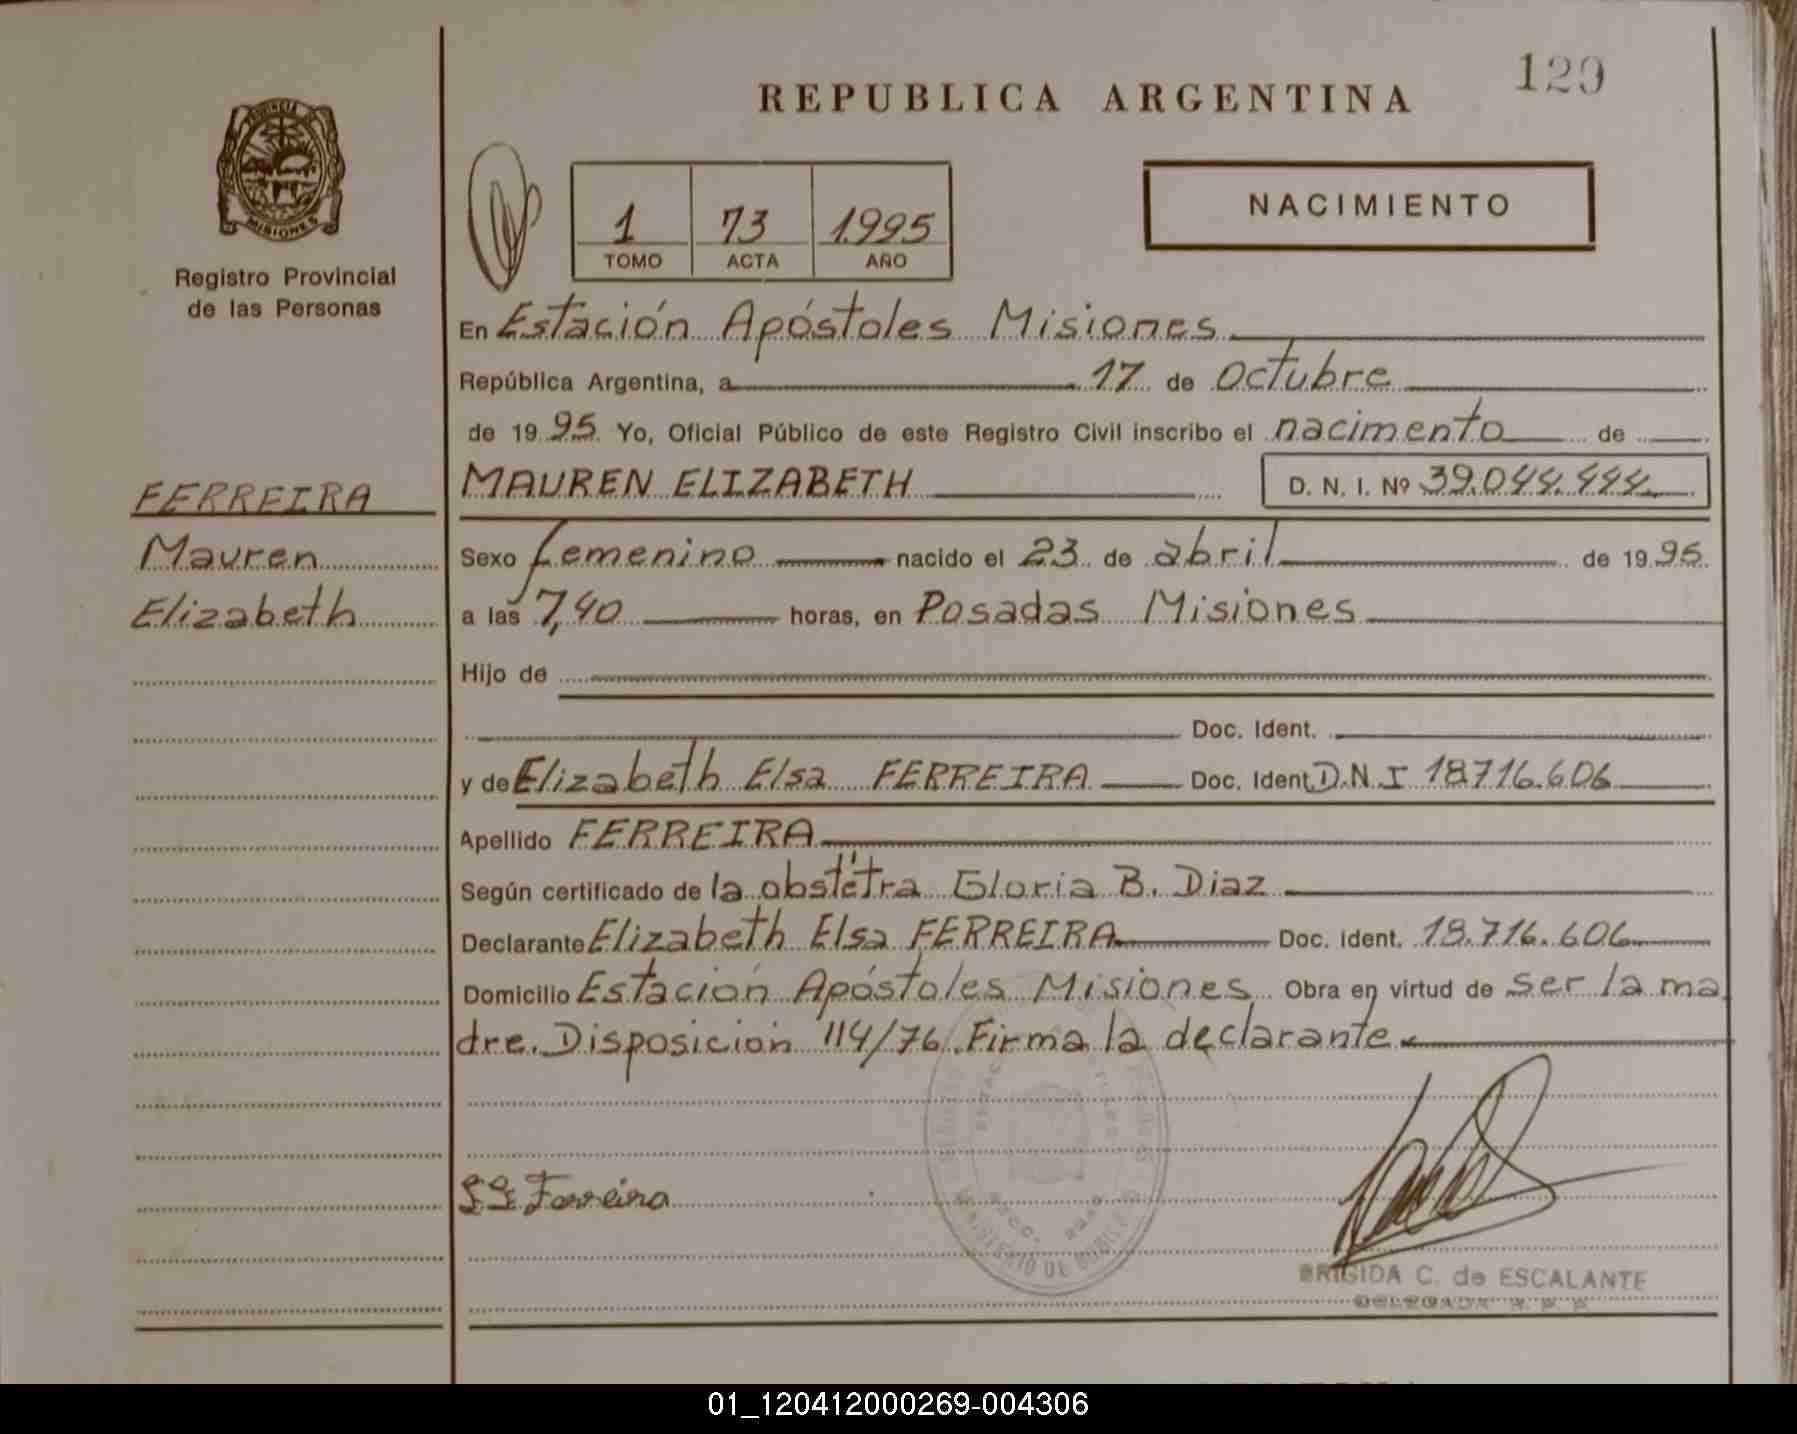 129
REPUBLICA ARGENTINA
PROVINCIA DE
MISIONES
Registro Provincial
de las Personas
1 73 1995
TOMO ACTA AÑO
NACIMIENTO
En Estación Apóstoles Misiones
República Argentina, a 17 de octubre
de 19 95 Yo, Oficial Público de este Registro Civil inscribo el nacimento de
FERREIRA
Mauren
Elizabeth
MAUREN ELIZABETH D. N. I. Nº 39.044.444
Sexo femenino nacido el 23 de abril de 19 95
a las 7,40 horas, en Posadas Misiones
Hijo de
Doc. Ident.
y de Elizabeth Elsa FERREIRA Doc. Ident. D.N.I 18.716.606
Apellido FERREIRA
Según certificado de la obstétra Gloria B. Diaz
Declarante Elizabeth Elsa FERREIRA Doc. ident. 18.716.606
Domicilio Estación Apóstoles Misiones Obra en virtud de ser la ma
dre. Disposición 114/76. Firma la declarante.
Ferreira
BRIGIDA C. de ESCALANTE
DELEGADA R. P. P.
01_120412000269-004306